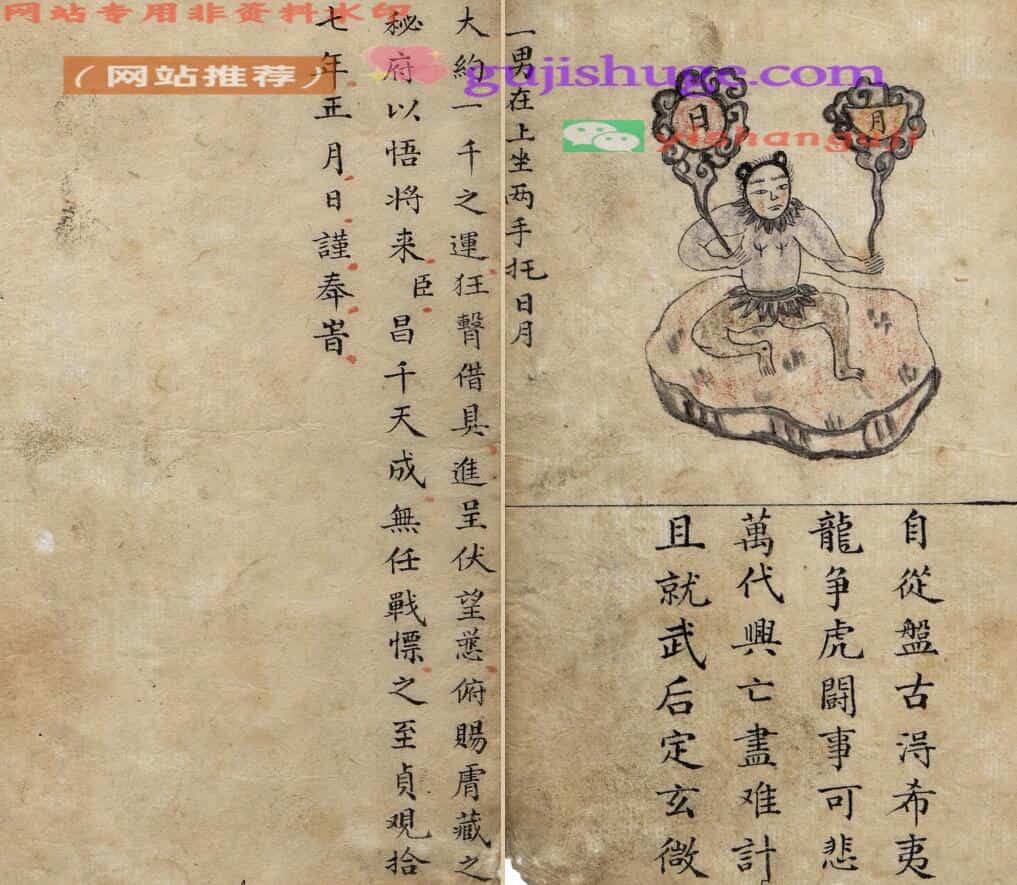 网站专用非资料水印
（网站推荐）
gujishuge.com
yishanguji
日
月
一男在上坐两手托日月
自從盤古淂希夷
龍争虎闘事可悲
萬代興亡盡难計
且就武后定玄微
大約一千之運狂瞽借具進呈伏望慈俯賜藏之
秘府以悟将来臣昌千天成無任戰慓之至貞觀拾
七年正月日謹奉旹